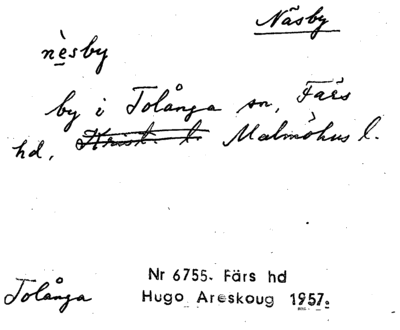 Näsby
nèsby
by i Tolånga sn, Färs
hd, Krist. l. Malmöhus l.
Nr 6755. Färs hd
Tolånga Hugo Areskoug 1957.